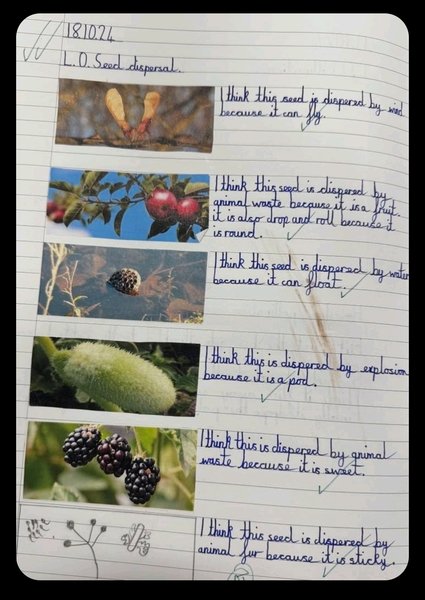 181024
L.O. Seed dispersal.
I think this seed is dispered by wind
because it can fly.
I think this seed is dispered by
animal waste because it is a fruit.
it is also drop and roll because it
is round.
I think this seed is dispered by water
because it can float.
I think this is dispered by explosion
because it is a pod.
I think this is dispered by animal
waste because it is sweet.
I think this seed is dispered by
animal fur because it is sticky.